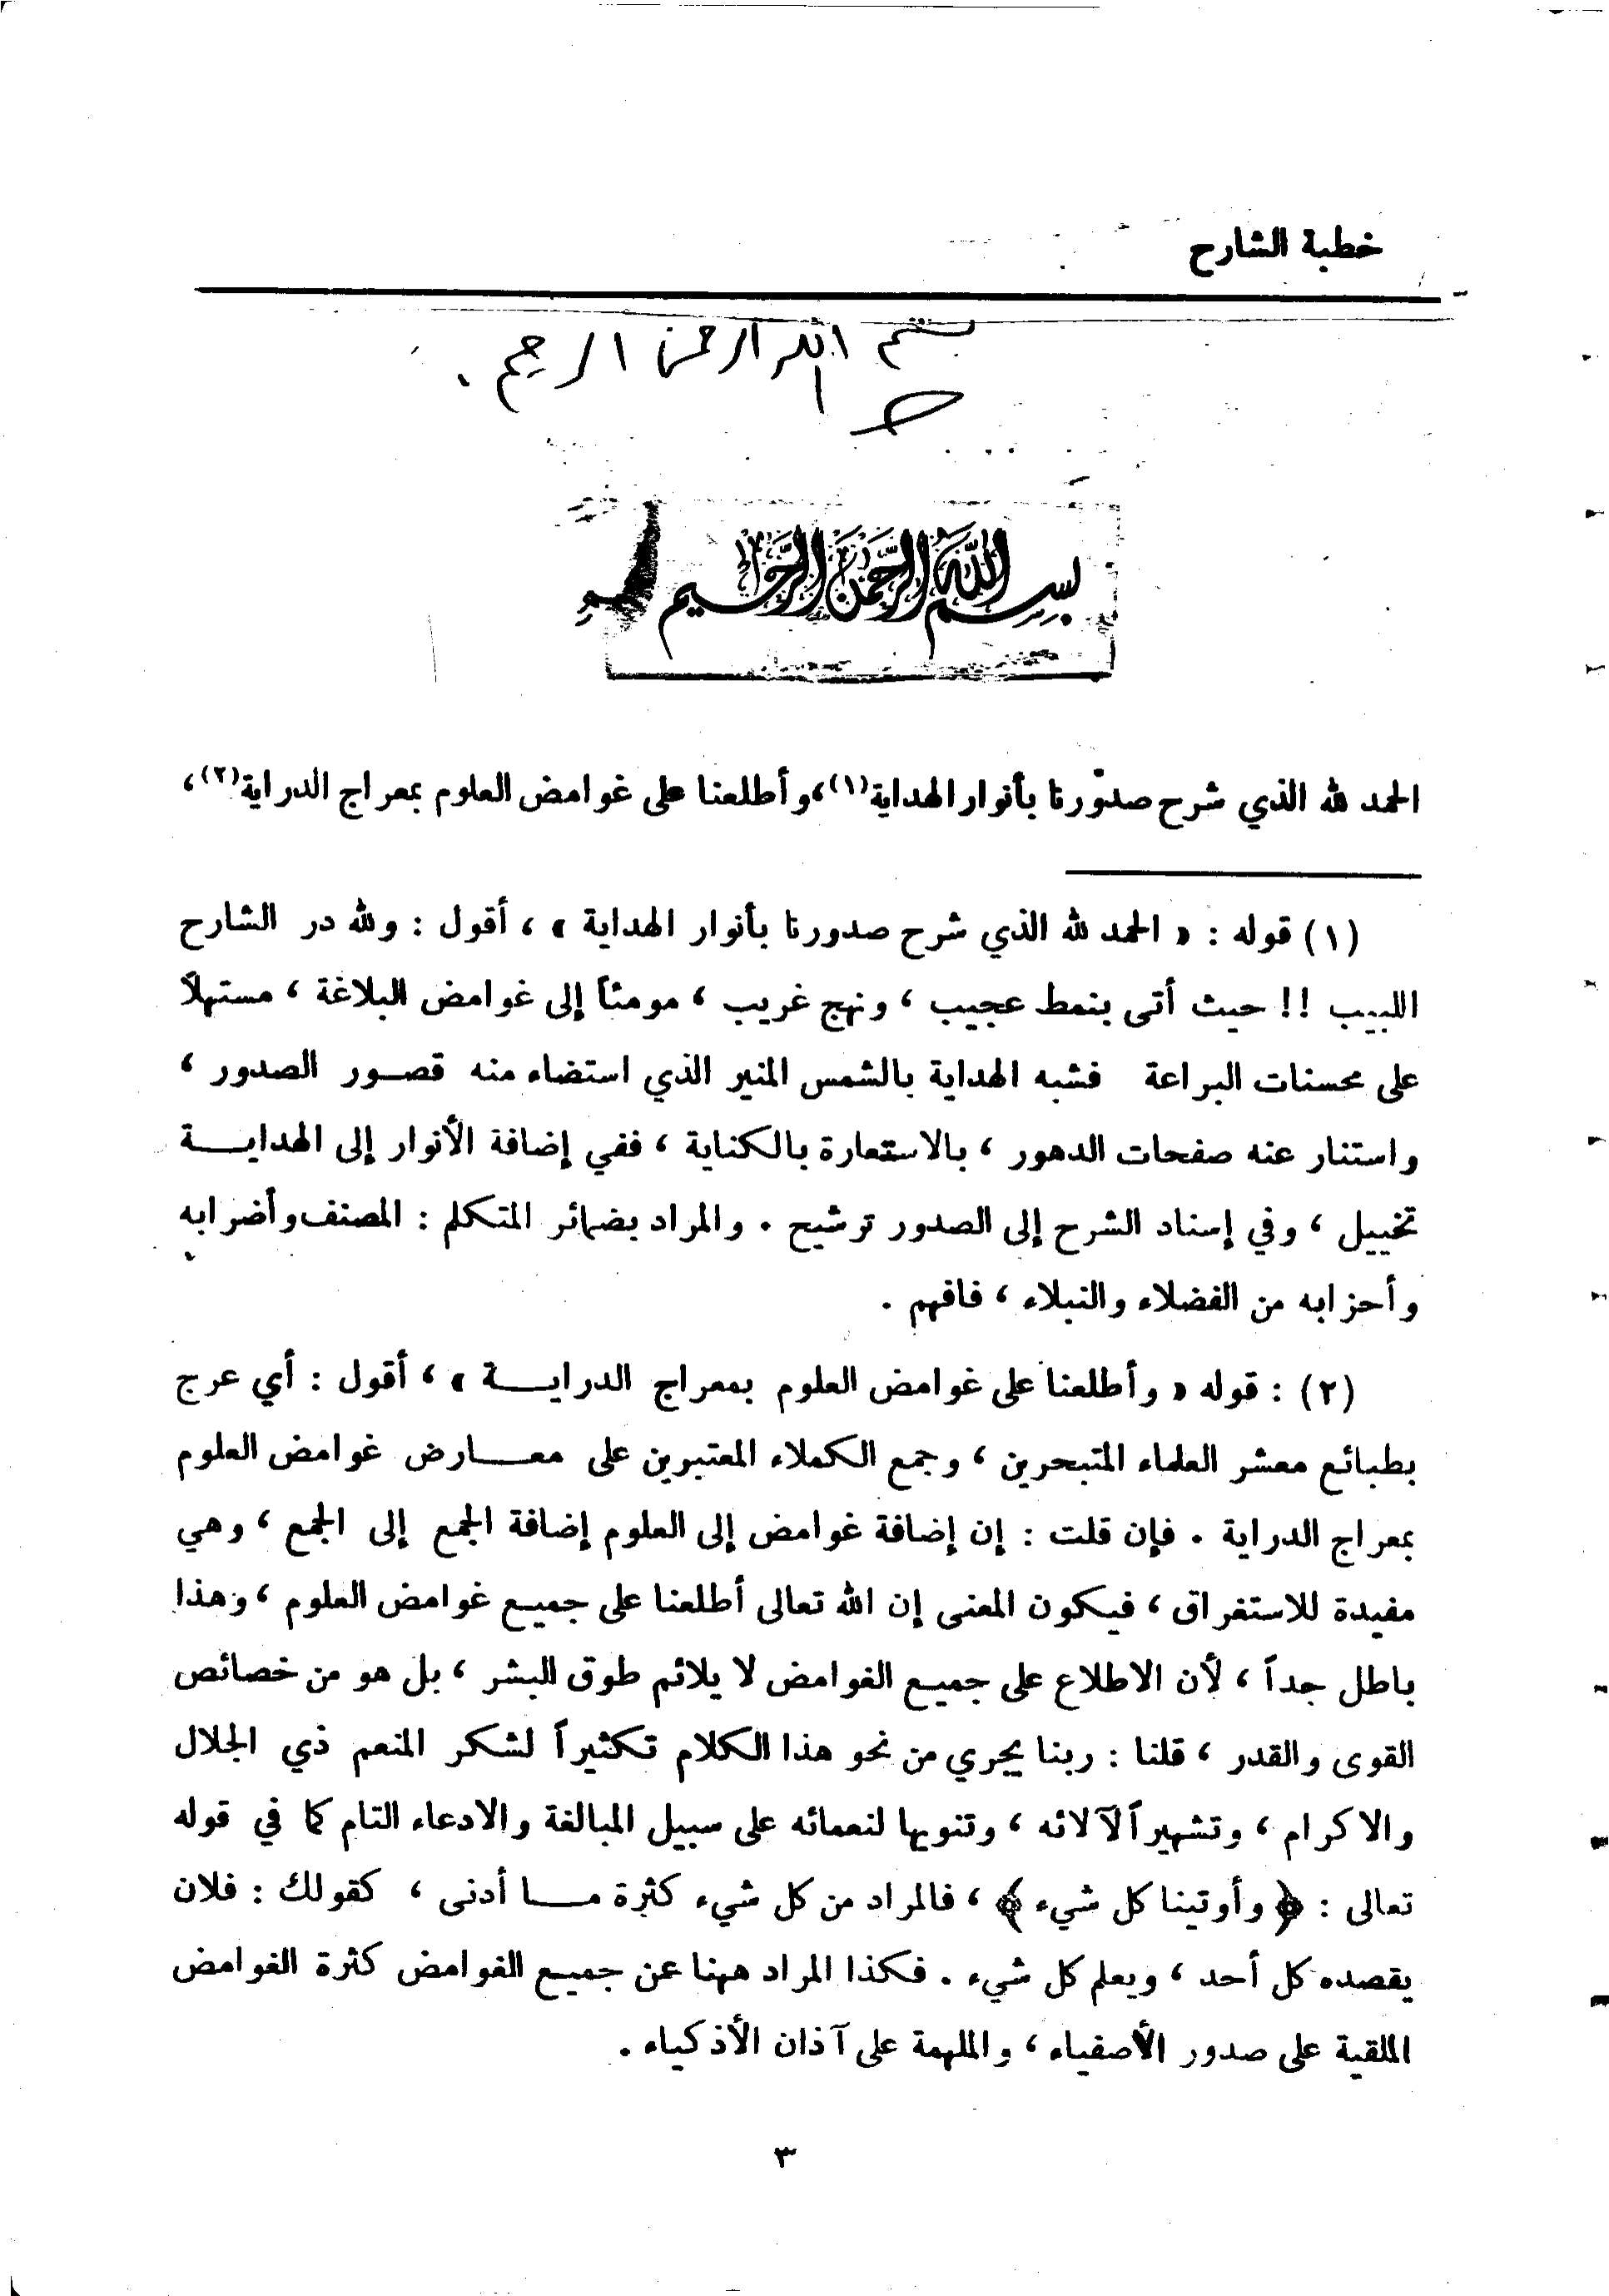 خطبة الشارح
بسم الله الرحمن الرحيم .
بسم الله الرحمن الرحيم
الحمد لله الذي شرح صدورنا بأنوار الهداية(١)،وأطلعنا على غوامض العلوم بمعراج الدراية(٢)،
(١) قوله : « الحمد لله الذي شرح صدورنا بأنوار الهداية » ، أقول : ولله در الشارح
اللبيب !! حيث أتى بنمط عجيب ، ونهج غريب ، مومئاً إلى غوامض البلاغة ، مستهلاً
على محسنات البراعة فشبه الهداية بالشمس المنير الذي استضاء منه قصور الصدور ،
واستنار عنه صفحات الدهور ، بالاستعارة بالكناية ، ففي إضافة الأنوار إلى الهدايـــة
تخييل ، وفي إسناد الشرح إلى الصدور ترشيح . والمراد بضمائر المتكلم : المصنف وأضرابه
وأحزابه من الفضلاء والنبلاء ، فافهم .
(٢) : قوله « وأطلعنا على غوامض العلوم بمعراج الدرايـــة » ، أقول : أي عرج
بطبائع معشر العلماء المتبحرين ، وجمع الكملاء المعتبرين على معـــارض غوامض العلوم
بمعراج الدراية . فإن قلت : إن إضافة غوامض إلى العلوم إضافة الجمع إلى الجمع ، وهي
مفيدة للاستغراق ، فيكون المعنى إن الله تعالى أطلعنا على جميع غوامض العلوم ، وهذا
باطل جداً ، لأن الاطلاع على جميع الغوامض لا يلائم طوق البشر ، بل هو من خصائص
القوى والقدر ، قلنا : ربنا يجري من نحو هذا الكلام تكثيراً لشكر المنعم ذي الجلال
والاكرام ، وتشهيراً لآلائه ، وتنويها لنعمائه على سبيل المبالغة والادعاء التام كما في قوله
تعالى : ﴿ وأوتينا كل شيء ﴾ ، فالمراد من كل شيء كثرة مـــا أدنى ، كقولك : فلان
يقصده كل أحد ، ويعلم كل شيء . فكذا المراد ههنا عن جميع الغوامض كثرة الغوامض
الملقية على صدور الأصفياء ، والملهمة على آذان الأذكياء .
٣